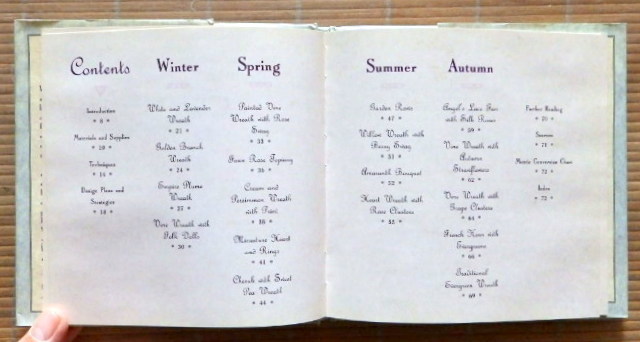 Contents
Introduction
* 8 *
Materials and Supplies
* 10 *
Techniques
* 14 *
Design Plans and
Strategies
* 18 *
Winter
White and Lavender
Wreath
* 21 *
Golden Branch
Wreath
* 24 *
Empire Plume
Wreath
* 27 *
Vine Wreath with
Folk Dolls
* 30 *
Spring
Painted Vine
Wreath with Rose
Swag
* 33 *
Grace Rose Topiary
* 36 *
Cream and
Persimmon Wreath
with Fruit
* 38 *
Miniature Heart
and Rings
* 41 *
Cherub with Sweet
Pea Wreath
* 44 *
Summer
Garden Roses
* 47 *
Willow Wreath with
Peony Swag
Amaranth Bouquet
Heart Wreath with
Rose Clusters
Autumn
Angel's Lace Fan
with Silk Roses
* 59 *
Vine Wreath with
Autumn
Strawflowers
* 62 *
Vine Wreath with
Grape Clusters
* 64 *
French Horn with
Evergreens
* 66 *
Traditional
Evergreen Wreath
* 69 *
Further Reading
Sources
* 71 *
Metric Conversion Chart
* 72 *
Index
* 72 *